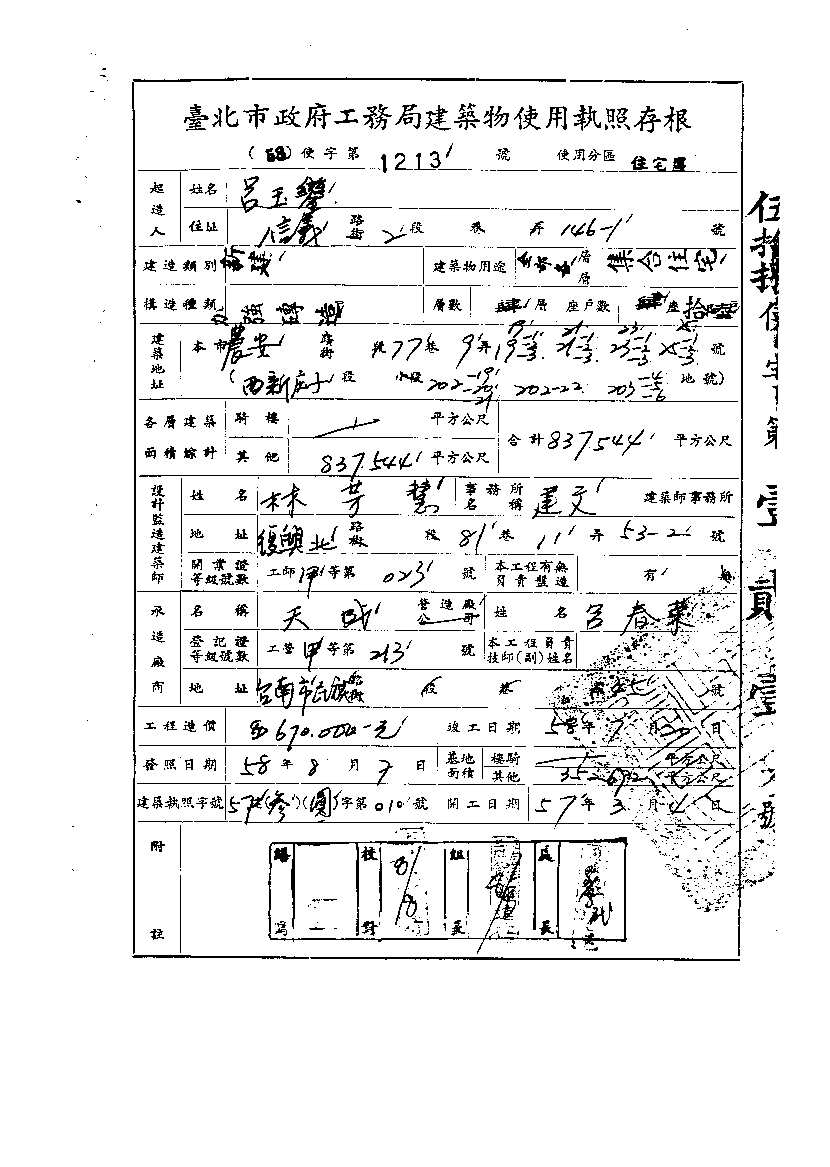 臺北市政府工務局建築物使用執照存根
(58)使字第 1213 號 使用分區 住宅區
起造人 姓名 呂玉鑾
住址 信義 路街 2 段 巷 弄 146-1 號
建造類別 新建 建築物用途 層層 集合住宅
構造種類 加強磚造 層數 肆 層 座戶數 肆 座 拾
建築地址 本市 農安 路街 號 77 巷 9 弄 號
(西新庄子 段 小段 202 202-22 203 地號)
各層建築面積綜計 騎樓 平方公尺 合計 837.544 平方公尺
其他 837.544 平方公尺
設計監造建築師 姓名 林芳慧 事務所名稱 建文 建築師事務所
地址 復興北 路街 段 81 巷 11 弄 53-2 號
開業證等級號數 工師 甲 等第 023 號 本工程有無負責監造 有 無
承造廠商 名稱 天成 營造廠公司 姓名 呂春葉
登記證等級號數 工營 甲 等第 213 號 本工程負責技師(副)姓名
地址 台南市民族路 段 巷 號
工程造價 670.000元 竣工日期 58 年 7 月 30 日
發照日期 58 年 8 月 7 日 基地面積 樓騎 平方公尺 其他 平方公尺
建築執照字號 57(參)(圓)字第 010 號 開工日期 57 年 3 月 4 日
附註 繕寫 校對 8/8 組長 處長
伍拾捌使字第壹貳壹 號